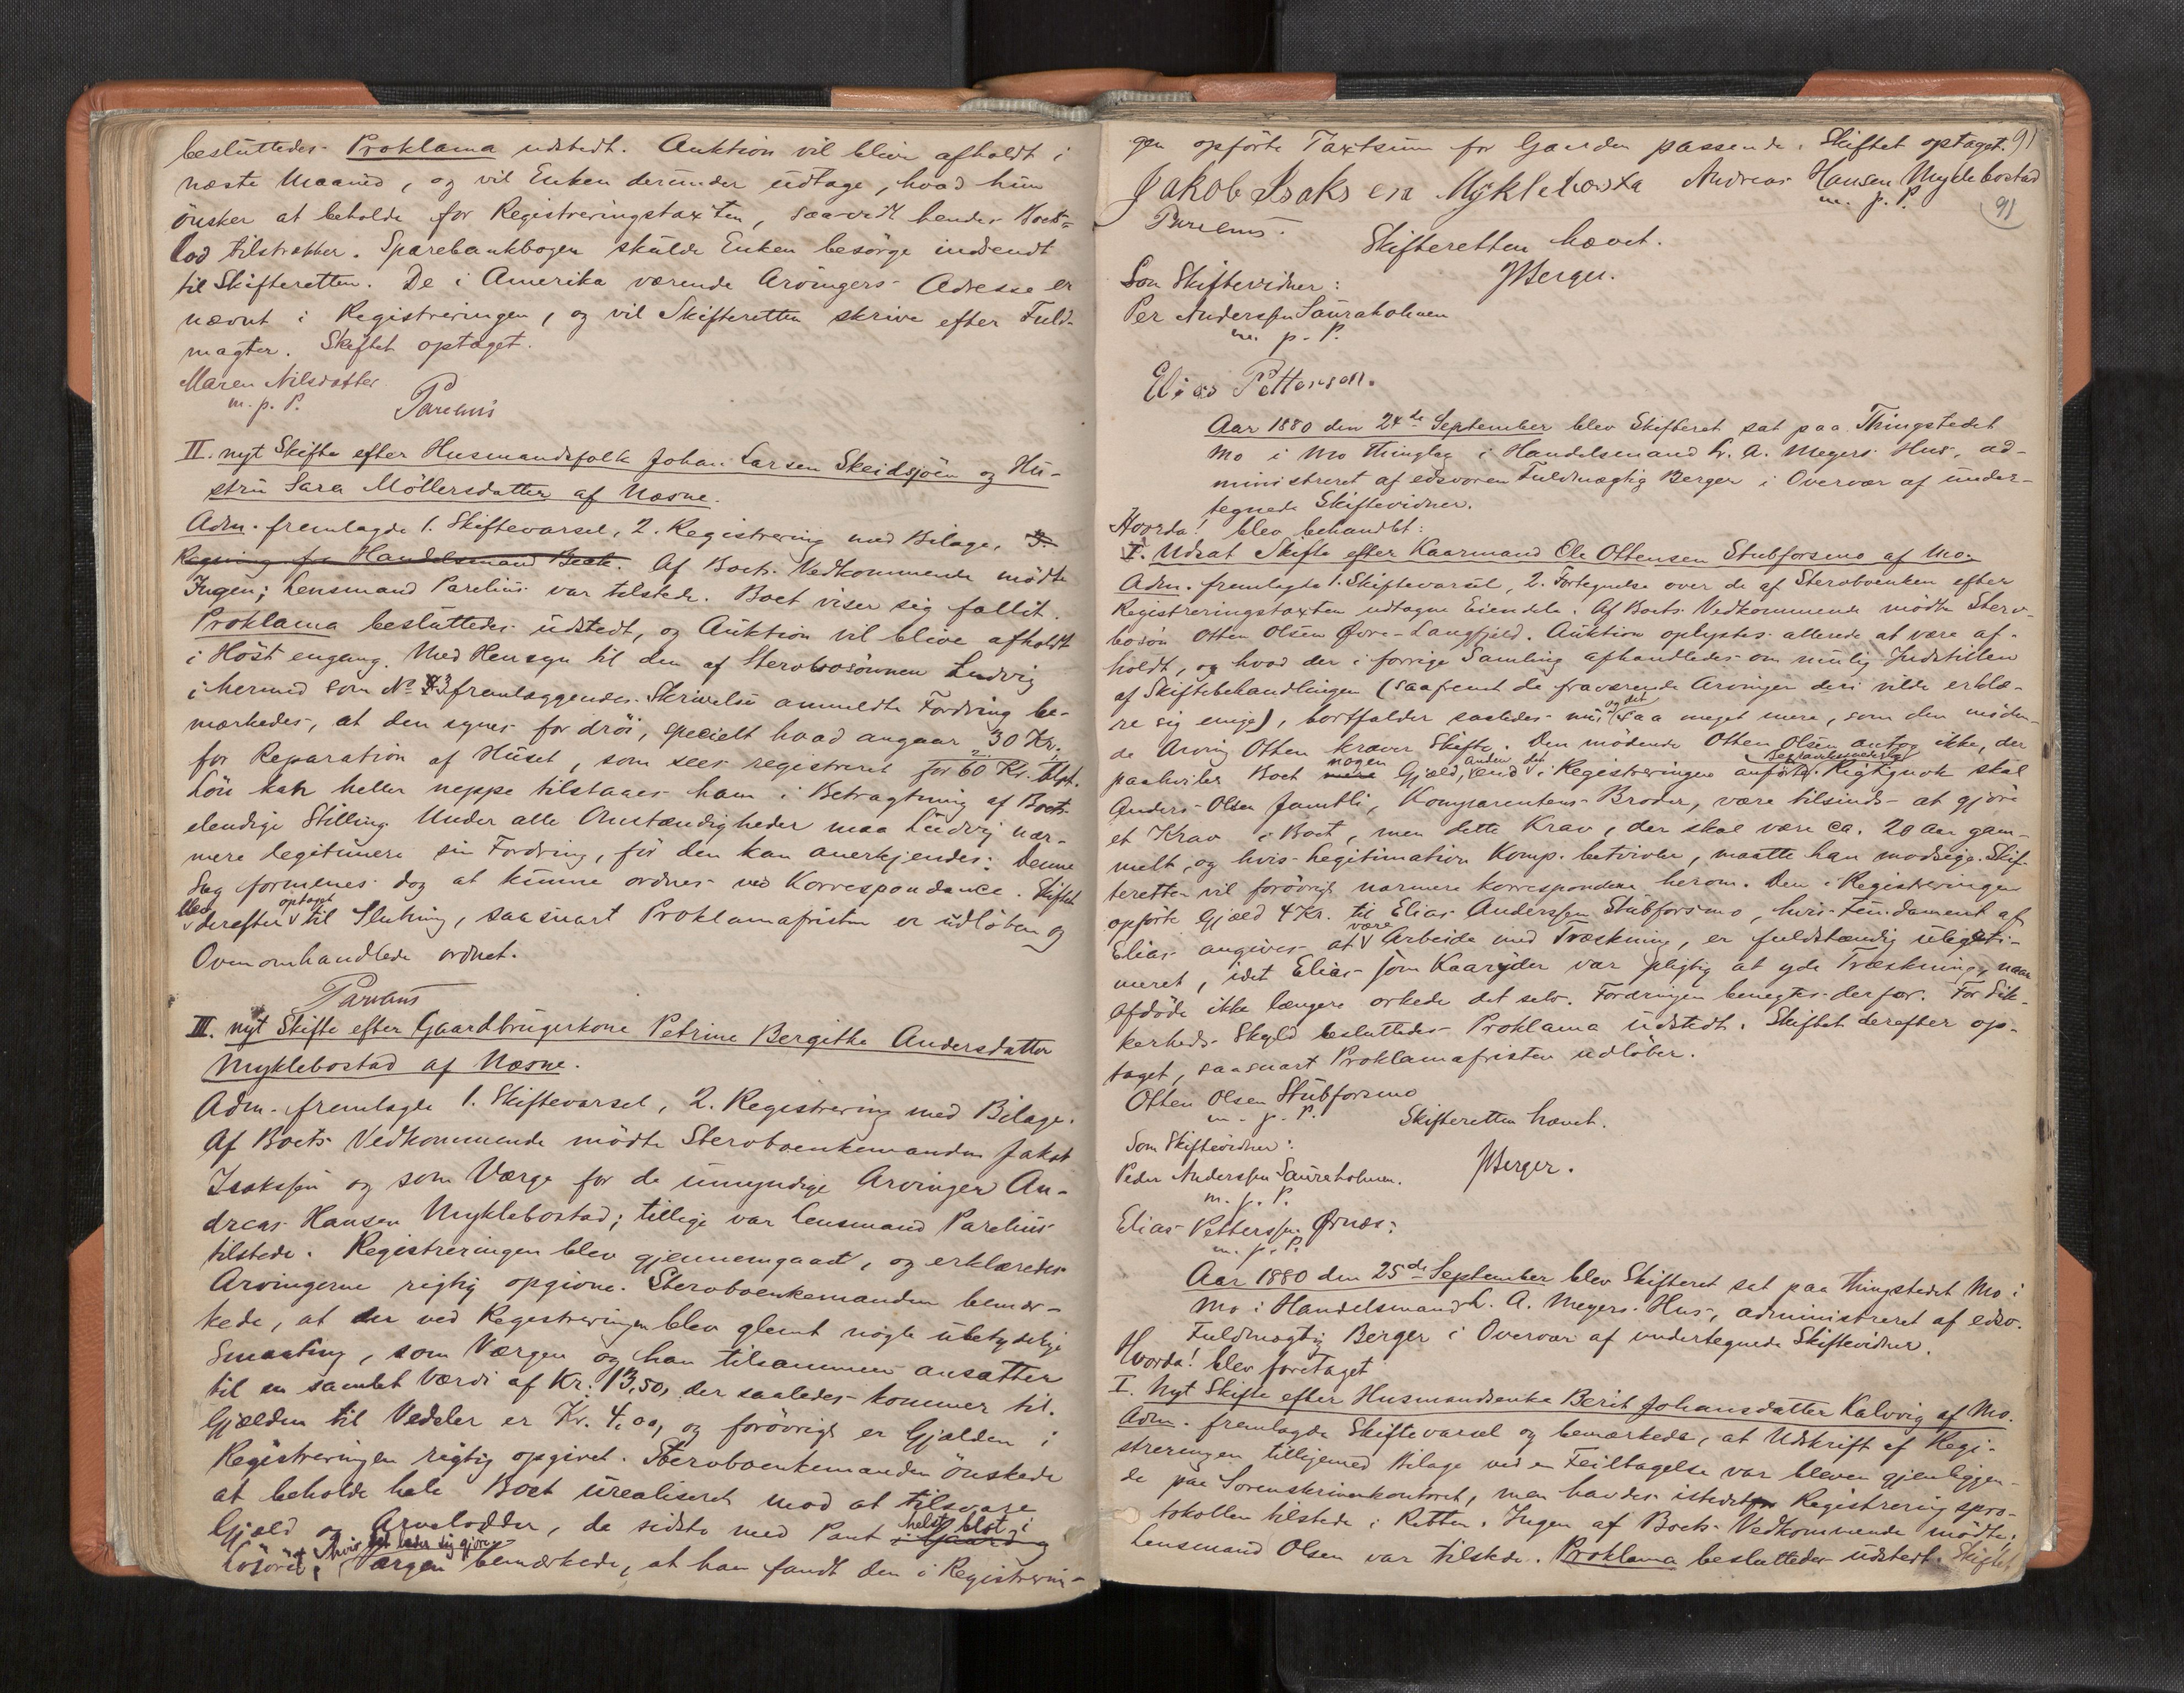 besluttedes Proklama udstedt. Auktion vil blive afholdt i
næste Maaned, og vil Enken derunder udtage, hvad hun
ønsker at beholde for Registreringstaxten, saavidt hendes Boes-
lod tilstrækker. Sparebankbogen skulde Enken besørge indsendt
til Skifteretten. De i Amerika værende Arvingers Adresse er
nævnt i Registreringen, og vil Skifteretten skrive efter Fuld-
magter. Skiftet optaget.
Maren Nilsdatter
m. p. P. Parelius
II. nyt Skifte efter Husmandsfolk Johan Larsen Skeidsjøen og Hu-
stru Sara Möllersdatter af Næsne.
Adm. fremlagde 1. Skiftevarsel, 2. Registrering med Bilage, 3.
Regning fra Handelsmand Beck. Af Boets Vedkommende mödte
Ingen; Lensmand Parelius var tilstede. Boet viser sig fallit.
Proklama besluttedes udstedt, og Auktion vil blive afholdt
i Høst engang. Med Hensyn til den af Stervbosönnen Ludvig
i hermed som No 3 fremlæggendes Skrivelse anmeldte Fordring be-
mærkedes, at den synes for dröi, specielt hvad angaar 30 Kr.
for Reparation af Huset, som sees registreret for 60 Kr. blot.
Lön kan heller neppe tilstaaes ham i Betragtning af Boets
elendige Stilling. Under alle Omstændigheder maa Ludvig nær-
mere legitimere sin Fordring, för den kan anerkjendes. Denne
Sag formenes dog at kunne ordnes ved Korrespondance. Skiftet
blev derefter optaget til Slutning, saasnart Proklamafristen er udlöben og
Ovenomhandlede ordnet.
Parelius
III. nyt Skifte efter Gaardbrugerkone Petrine Bergithe Andersdatter
Myklebostad af Næsne.
Adm. fremlagde 1. Skiftevarsel, 2. Registrering med Bilage.
Af Boets Vedkommende mödte Stervboenkemanden Jakob
Isaksen og som Værge for de umyndige Arvinger An-
dreas Hansen Myklebostad; tillige var Lensmand Parelius
tilstede. Registreringen blev gjennemgaaet, og erklæredes
Arvingerne rigtig opgivne. Stervboenkemanden bemær-
kede, at der ved Registreringen blev glemt nogle ubetydelige
Smaating, som Værgen og han tilsammen ansætter
til en samlet Værdi af Kr. 13,50, der saaledes kommer til.
Gjælden til Vedeler er Kr. 4,00, og forøvrigt er Gjælden i
Registreringen rigtig opgivet. Stervboenkemanden ønskede
at beholde hele Boet urealiseret mod at tilsvare
Gjæld og Arvelodder, de sidste med Pant i Gaard og helst blot i
Løsöret, hvis det lader sig gjøre. Værgen bemærkede, at han fandt den i Registrerin-
gen opførte Taxtsum for Gaarden passende. Skiftet optaget. 91
Jakob Isaksen Myklebosta Andreas Hansen Myklebostad
m. p. P. 91
Parelius. Skifteretten hævet.
JBerger.
Som Skiftevidner:
Per Anderssen Sauraholmen
m. p. P.
Elias Pettersen.
Aar 1880 den 24de September blev Skifteret sat paa Thingstedet
Mo i Mo Thinglag i Handelsmand L. A. Meyers Hus, ad-
ministreret af edsvoren Fuldmægtig Berger i Overvær af under-
tegnede Skiftevidner.
Hvorda! blev behandlet:
I. Udsat Skifte efter Kaarmand Ole Ottensen Stubforsmo af Mo.
Adm. fremlagde 1. Skiftevarsel, 2. Fortegnelse over de af Stervboenken efter
Registreringstaxten udtagne Eiendele. Af Boets Vedkommende mødte Sterv-
bosön Otten Olsen Øvre-Langfjeld. Auktion oplystes allerede at være af-
holdt, og hvad der i forrige Samling afhandledes om mulig Indstillen
af Skiftebehandlingen (saafremt de fraværende Arvinger deri vilde erklæ-
re sig enige), bortfalder saaledes nu, og det saa meget mere, som den møden-
de Arving Otten kræver Skifte. Den mödende Otten Olsen antog ikke, der
paahviler Boet nogen Gjæld, anden end det i Registreringen anførte. Rigtignok skal
Anders Olsen Jamtli, Komparentens Broder, være tilsinds at gjöre
et Krav i Boet, men dette Krav, der skal være ca. 20 Aar gam-
melt, og hvis Legitimation Komp. betvivler, maatte han modsige. Skif-
teretten vil forövrigt nærmere korrespondere herom. Den i Registreringen
opførte Gjæld 4 Kr. til Elias Anderssen Stubforsmo, hvis Fundament af
Elias angives at være Arbeide med Træskning, er fuldstændig ulegiti-
meret, idet Elias som Kaaryder var pligtig at yde Træskning, naar
Afdøde ikke længere orkede det selv. Fordringen benegtes derfor. For Sik-
kerheds Skyld besluttedes Proklama udstedt. Skiftet derefter op-
taget, saasnart Proklamafristen udløber.
Otten Olsen Stubforsmo
m. p. P. Skifteretten hævet.
Som Skiftevidner:
Peder Anderssen Sauraholmen. JBerger.
m. p. P.
Elias Petterssen Ørnæs.
m. p. P.
Aar 1880 den 25de September blev Skifteret sat paa Thingstedet Mo i
Mo i Handelsmand L. A. Meyers Hus, administreret af edsv.
Fuldmægtig Berger i Overvær af undertegnede Skiftevidner.
Hvorda! blev foretaget
I. Nyt Skifte efter Husmandsenke Berit Johansdatter Kalvvig af Mo.
Adm. fremlagde Skiftevarsel og bemærkede, at Udskrift af Regi-
streringen tilligemed Bilage ved en Feiltagelse var bleven gjenliggen-
de paa Sorenskriverkontoret, men havdes istedet Registreringspro-
tokollen tilstede i Retten. Ingen af Boets Vedkommende mödte;
Lensmand Olsen var tilstede. Proklama besluttedes udstedt. Skiftet